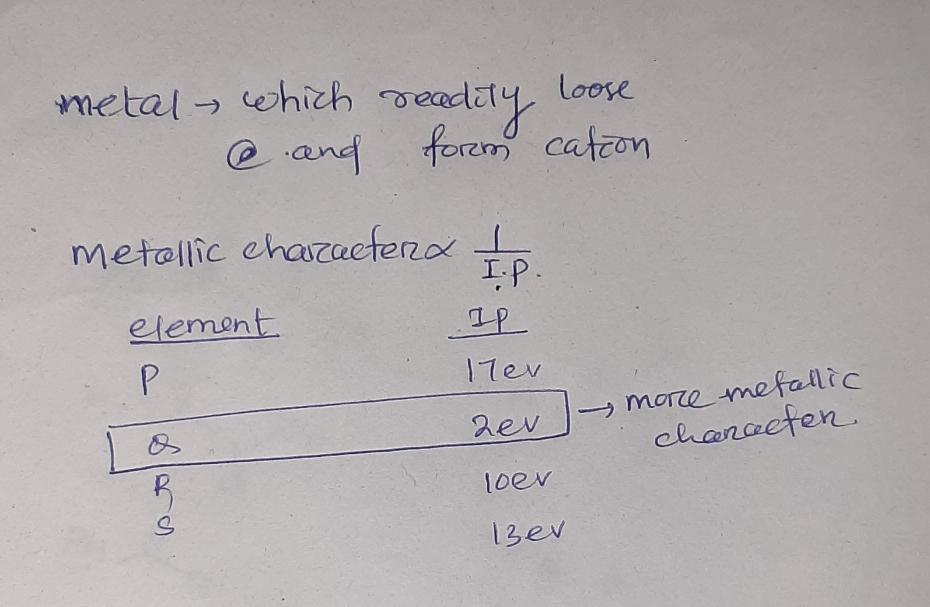 metal → which readily loose
e and form cation
metallic character ∝ 1/I.P.
element IP
P 17ev
Q 2ev → more metallic character.
R 10ev
S 13ev